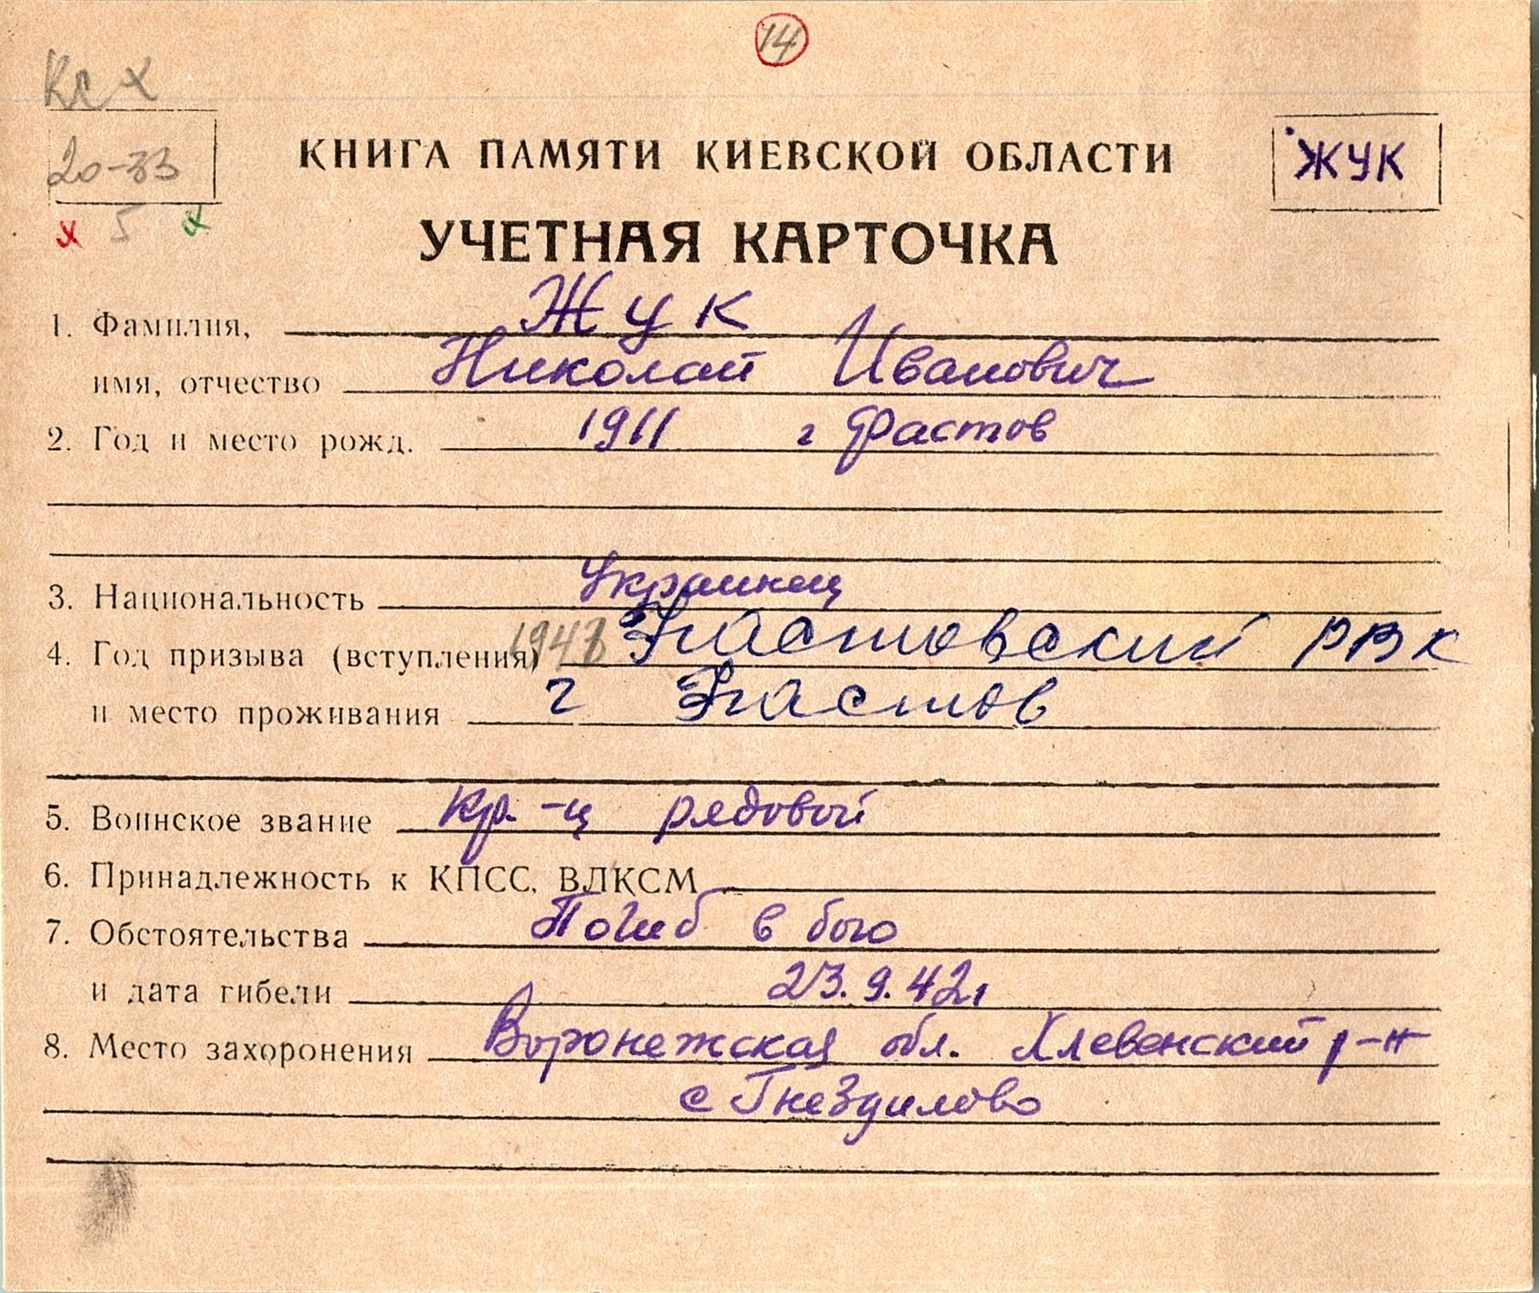 14
20-33
КНИГА ПАМЯТИ КИЕВСКОЙ ОБЛАСТИ
ЖУК
5
УЧЕТНАЯ КАРТОЧКА
1. Фамилия, Жук
имя, отчество Николай Иванович
2. Год и место рожд. 1911 г Фастов
3. Национальность Украинец
4. Год призыва (вступления) Фастовский РВК
и место проживания г Фастов
5. Воинское звание кр-ц рядовой
6. Принадлежность к КПСС, ВЛКСМ
7. Обстоятельства Погиб в бою
и дата гибели 23.9.42г
8. Место захоронения Воронежская обл. Хлевенский р-н
с Гнездилово